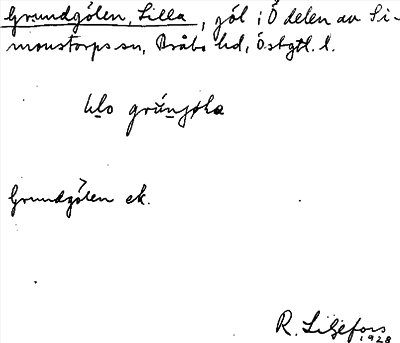 Grundgölen, Lilla, göl i Ö delen av Si-
monstorps sn, Bråbo hd, Östgtl. l.
Grundgölen ek.
R. Liljefors
1928